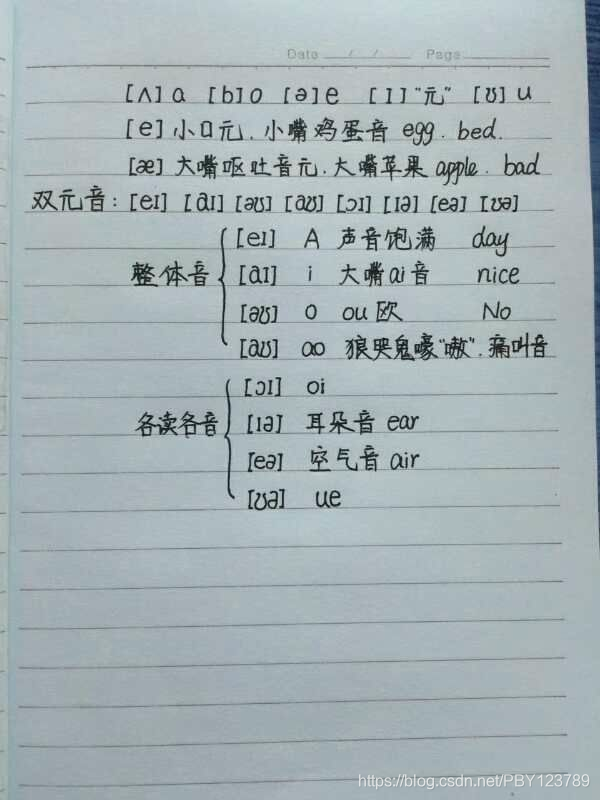 Date / / Page
[ʌ] a [b] o [ə] e [ɪ] "元" [ʊ] u
[e] 小口元. 小嘴鸡蛋音 egg. bed.
[æ] 大嘴呕吐音元. 大嘴苹果 apple. bad
双元音: [eɪ] [aɪ] [əʊ] [aʊ] [ɔɪ] [ɪə] [eə] [ʊə]
[eɪ] A 声音饱满 day
整体音 [aɪ] i 大嘴ai音 nice
[əʊ] o ou 欧 No
[aʊ] ao 狼哭鬼嚎"嗷". 痛叫音
[ɔɪ] oi
各读各音 [ɪə] 耳朵音 ear
[eə] 空气音 air
[ʊə] ue
https://blog.csdn.net/PBY123789